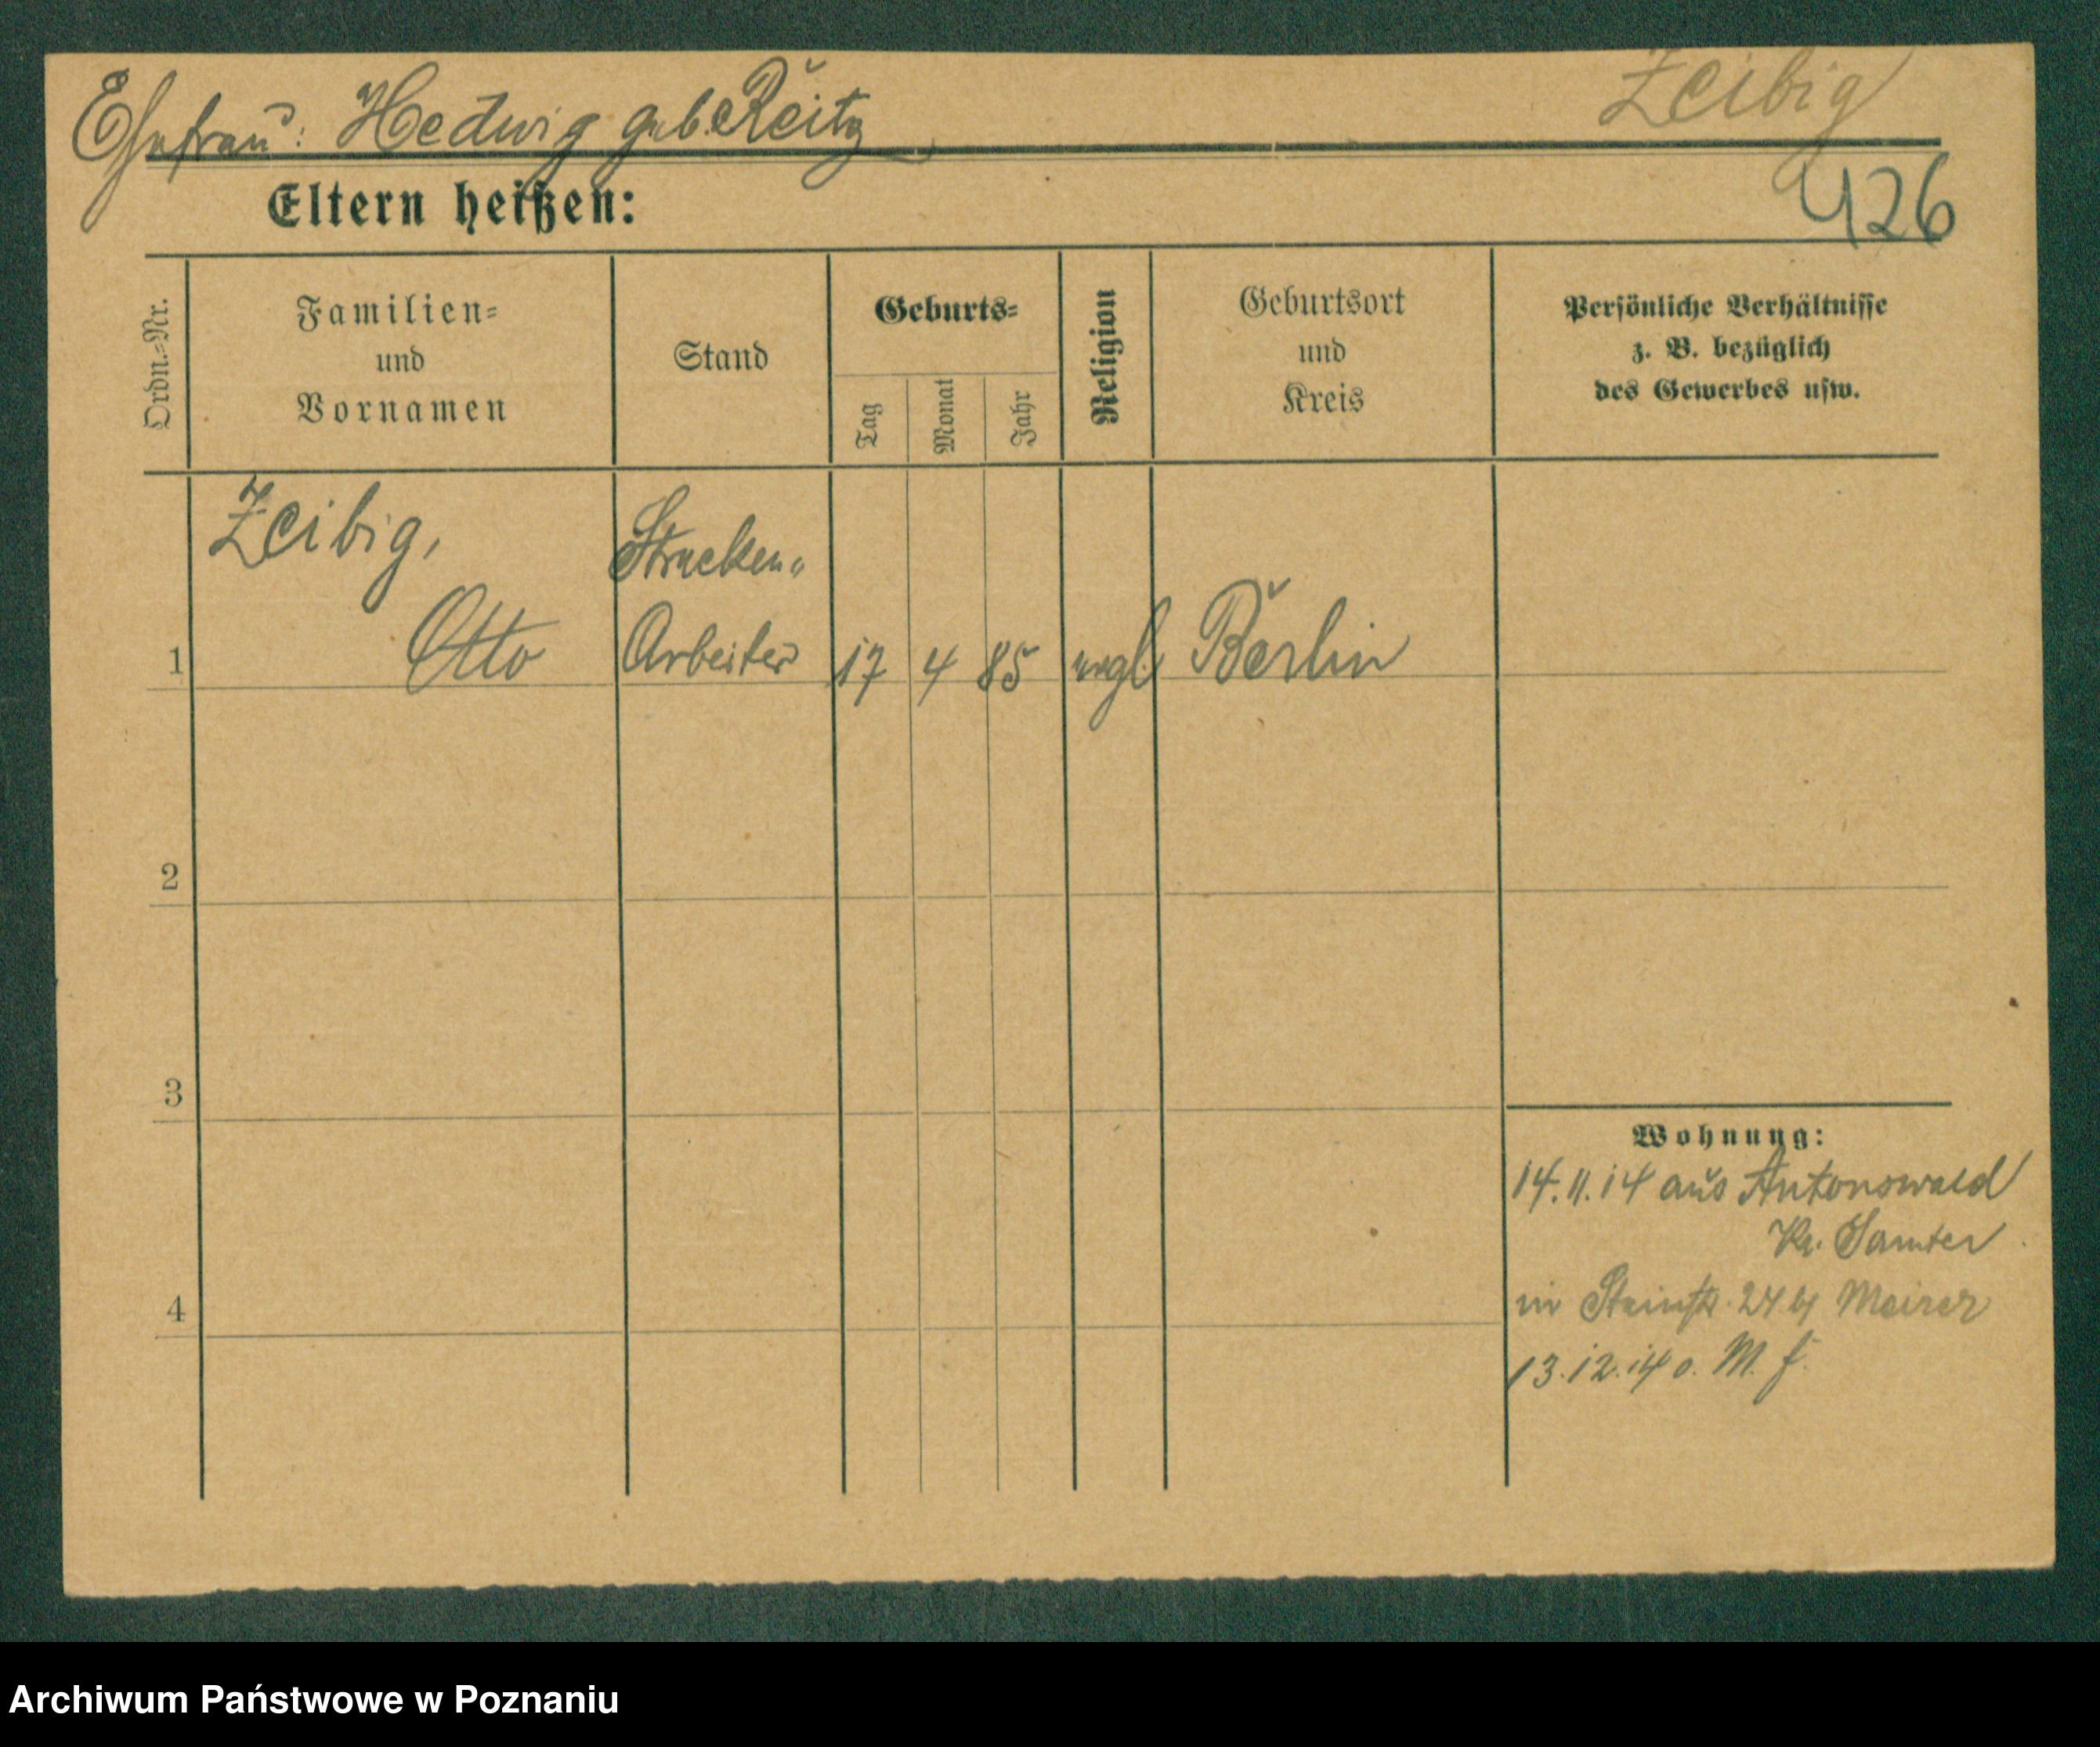 Zeibig
Ehefrau: Hedwig geb. Reitz
426
Eltern heißen:
Ordn.-Nr.
Familien-
und
Vornamen
Stand
Geburts-
Tag
Monat
Jahr
Religion
Geburtsort
und
Kreis
Persönliche Verhältnisse
z. B. bezüglich
des Gewerbes usw.
Zeibig,
Otto
Strecken-
Arbeiter
1
17 4 85 evgl Berlin
2
3
4
Wohnung:
14. 11. 14 aus Antonswald
Kr. Samter
in Steinstr. 24 b/ Meirer
13. 12. 14 o. M. f.
Archiwum Państwowe w Poznaniu